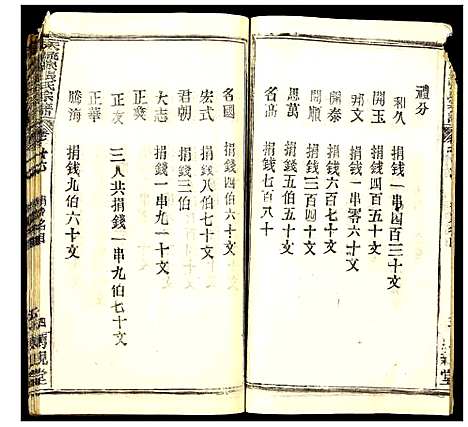 禮分
和久 捐錢一串四百三十文
開玉 捐錢四百五十文
邦文 捐錢一串零六十文
開泰 捐錢三百六十文
開順 捐錢三百四十文
思萬 捐錢五伯五十文
名高 捐錢七百八十
名國 捐錢四伯六十文
宏式 捐錢八伯七十文
君朝 捐錢三伯
大志 捐錢一串九一十文
正友
正華 三人共捐錢一串九伯七十文
騰海 捐錢九伯六十文
張氏宗譜